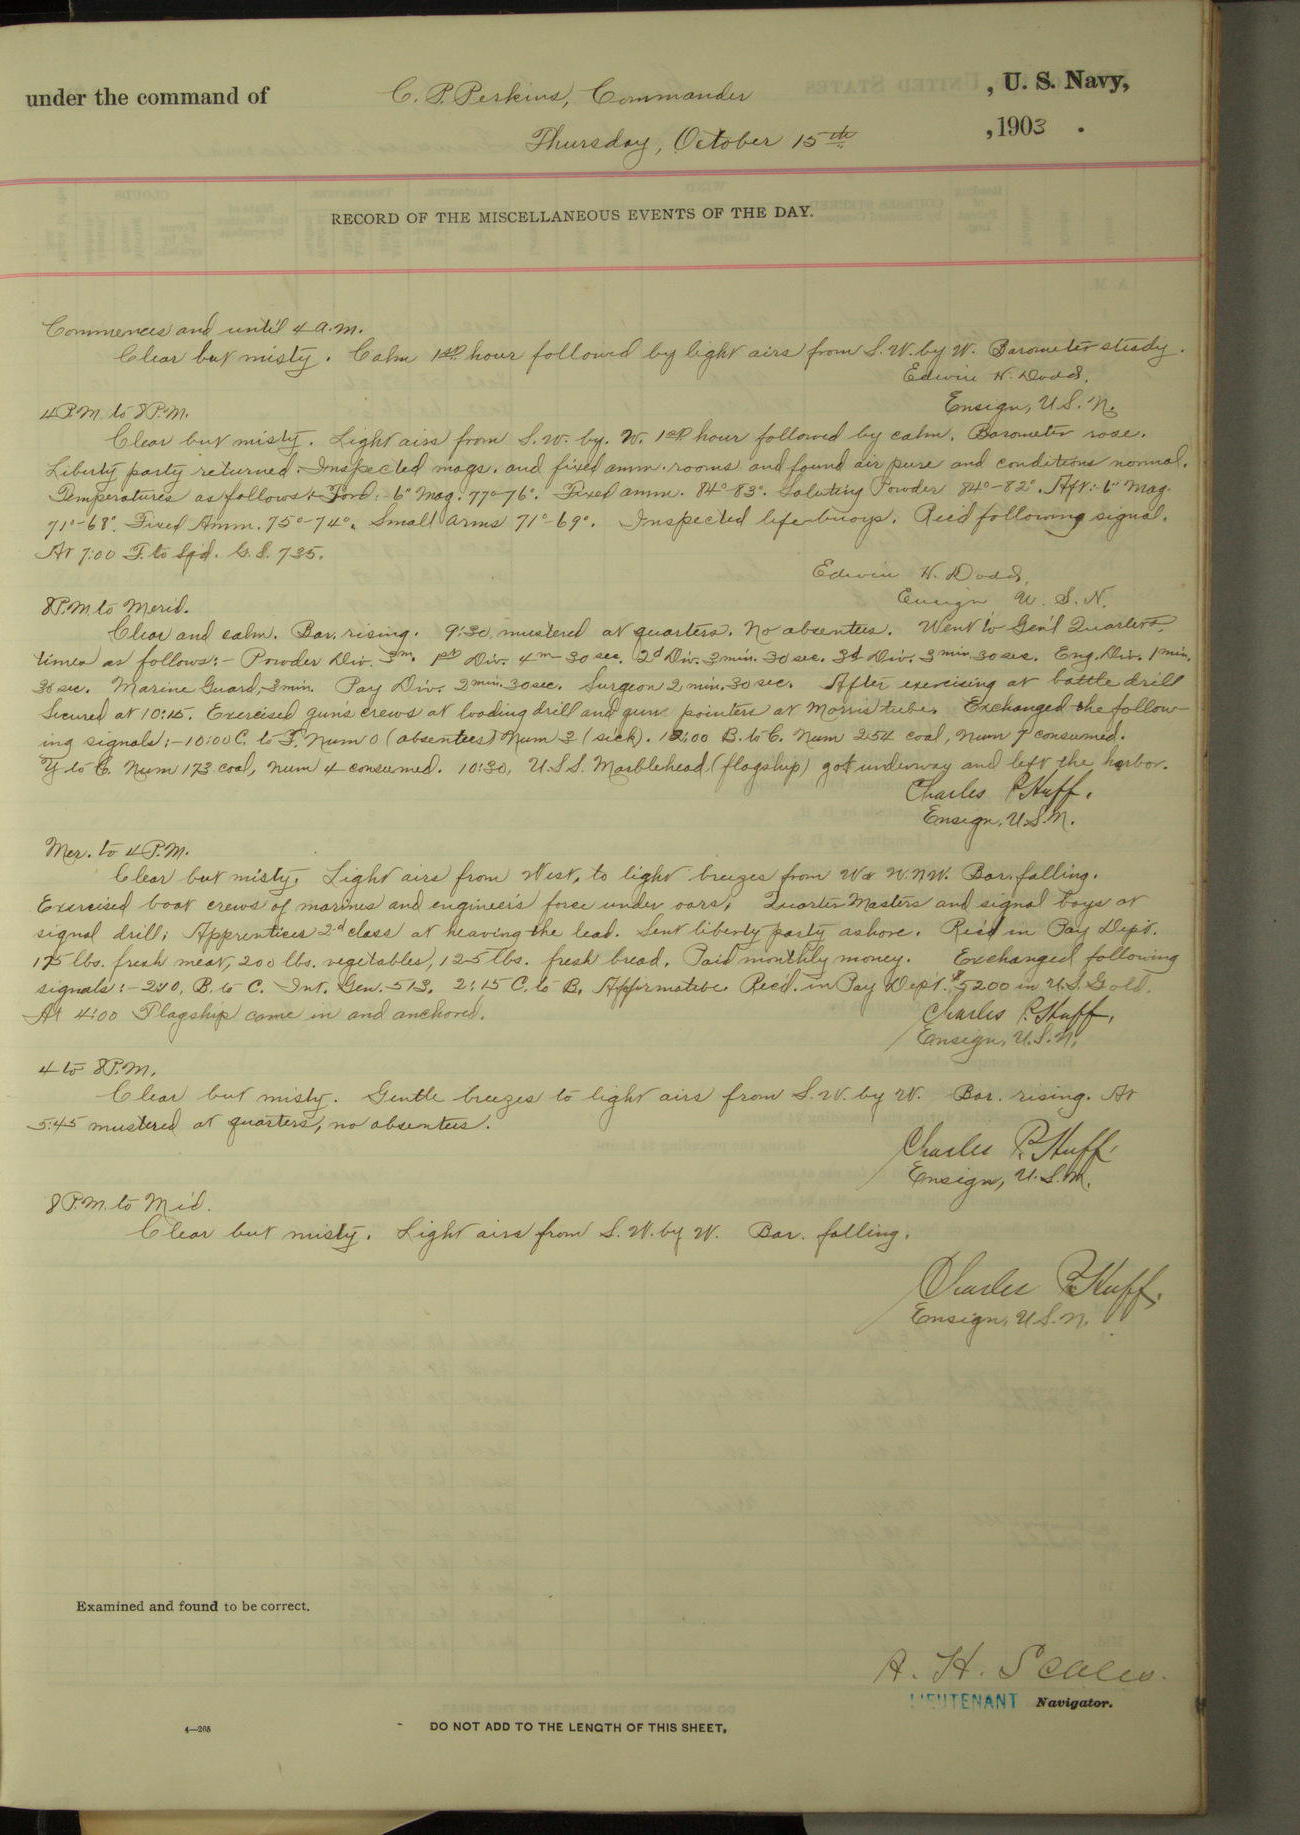 under the command of C. P. Perkins, Commander , U. S. Navy,
Thursday, October 15th , 1903 .
RECORD OF THE MISCELLANEOUS EVENTS OF THE DAY.
Commences and until 4 a.m.
Clear but misty. Calm 1st hour followed by light airs from S. W. by W. Barometer steady.
Edwin H. Dodd,
Ensign, U.S. N.
4 P.M. to 8 P.M.
Clear but misty. Light airs from S. W. by. W. 1st hour followed by calm. Barometer rose.
Liberty party returned. Inspected mags. and fixed amm. rooms and found air pure and conditions normal.
Temperatures as follows:- Ford:- 6" Mag. 77°-76°. Fixed amm. 84°-83°. Saluting Powder 84°-82°. Aft:- 6" Mag.
71°-68°. Fixed Amm. 75°-74°. Small arms 71°-69°. Inspected life-buoys. Rec'd following signal.
At 7:00 F. to Sq'd. G. S. 735.
Edwin H. Dodd,
Ensign U. S. N.
8 P.M. to Merid.
Clear and calm. Bar. rising. 9:30 mustered at quarters. No absentees. Went to Gen'l Quarters,
times as follows:- Powder Div. 3m. 1st Div. 4m-30 sec. 2d Div. 3 min. 30 sec. 3d Div. 3 min. 30 sec. Eng. Div. 1 min.
30 sec. Marine Guard,-3 min. Pay Div. 2 min. 30 sec. Surgeon 2 min. 30 sec. After exercising at battle drill
Secured at 10:15. Exercised gun's crews at loading drill and gun pointers at Morris tube. Exchanged the follow-
ing signals:-10:00 C. to F. Num 0 (absentees) Num 3 (sick). 12:00 B. to C. Num 254 coal, num 7 consumed.
Y to C. Num 173 coal, num 4 consumed. 10:30, U.S.S. Marblehead (flagship) got underway and left the harbor.
Charles P. Huff,
Ensign, U.S.N.
Mer. to 4 P.M.
Clear but misty. Light airs from West, to light breezes from W & W.N.W. Bar. falling.
Exercised boat crews of marines and engineer's force under oars, Quarter Masters and signal boys at
signal drill, Apprentices 2d class at heaving the lead. Sent liberty party ashore. Rec'd in Pay Dept.
175 lbs. fresh meat, 200 lbs. vegetables, 125 lbs. fresh bread. Paid monthly money. Exchanged following
signals:- 2:10, B. to C. Int. Gen. 513. 2:15 C. to B. Affirmative. Rec'd. in Pay Dep't. $5200 in U.S. Gold.
At 4:00 Flagship came in and anchored.
Charles P. Huff,
Ensign, U.S.N.
4 to 8 P.M.
Clear but misty. Gentle breezes to light airs from S. W. by W. Bar. rising. At
5:45 mustered at quarters, no absentees.
Charles P. Huff,
Ensign, U.S.N.
8 P.M. to Mid.
Clear but misty. Light airs from S. W. by W. Bar. falling.
Charles P. Huff,
Ensign, U.S.N.
Examined and found to be correct.
A. H. Scales.
LIEUTENANT Navigator.
4—265
DO NOT ADD TO THE LENGTH OF THIS SHEET.